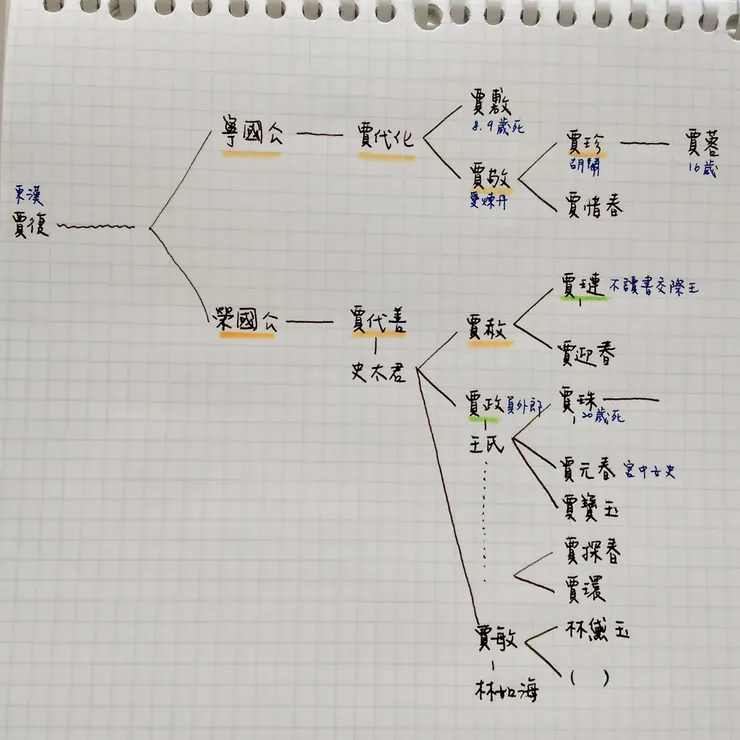 東漢
賈復
寧國公
賈代化
賈敷
8.9歲死
賈敬
愛煉丹
賈珍
胡鬧
賈蓉
16歲
賈惜春
榮國公
賈代善
史太君
賈赦
賈璉 不讀書交際王
賈迎春
賈政 員外郎
王氏
賈珠
20歲死
賈元春 宮中女史
賈寶玉
賈探春
賈環
賈敏
林如海
林黛玉
( )